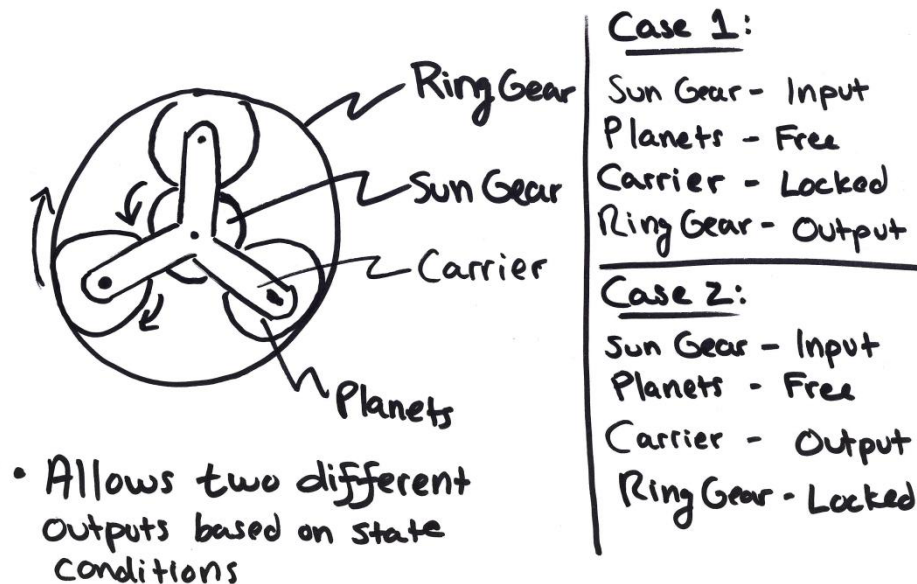 Ring Gear
Sun Gear
Carrier
Planets
• Allows two different
outputs based on state
conditions
Case 1:
Sun Gear - Input
Planets - Free
Carrier - Locked
Ring Gear - Output
Case 2:
Sun Gear - Input
Planets - Free
Carrier - Output
Ring Gear - Locked